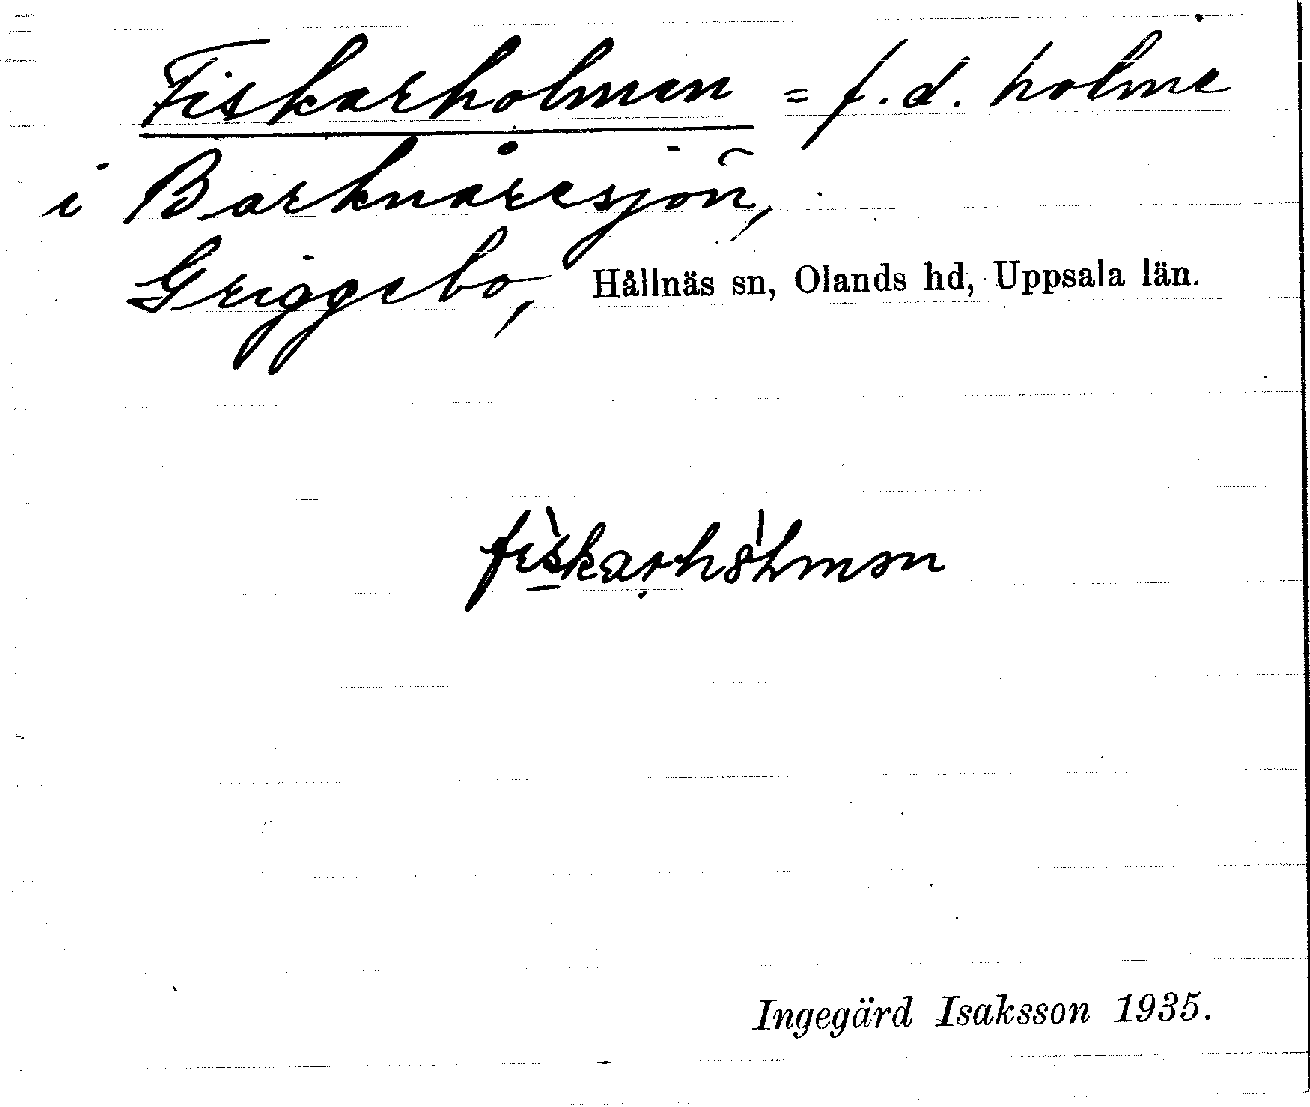 Fiskarholmen = f.d. holme
i Barknåresjön,
Griggebo, Hållnäs sn, Olands hd, Uppsala län.
Ingegärd Isaksson 1935.